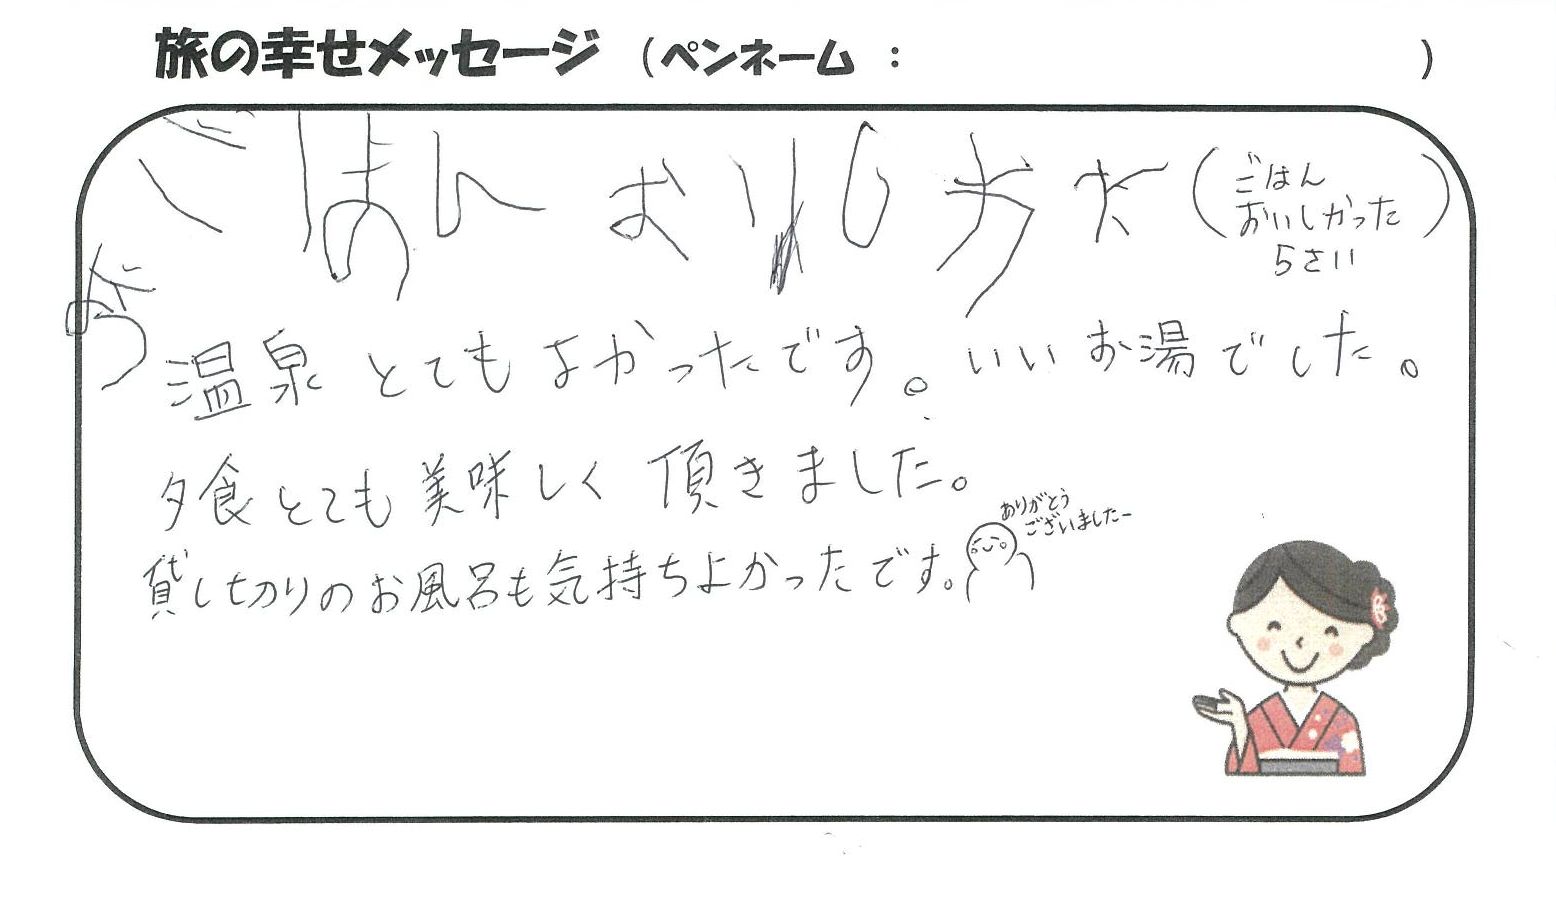 旅の幸せメッセージ (ペンネーム : )
ごはん おいし
(ごはん
おいしかった
5さい)
温泉 とてもよかったです。いいお湯でした。
夕食とても美味しく 頂きました。
ありがとう
ございましたー
貸し切りのお風呂も気持ちよかったです。